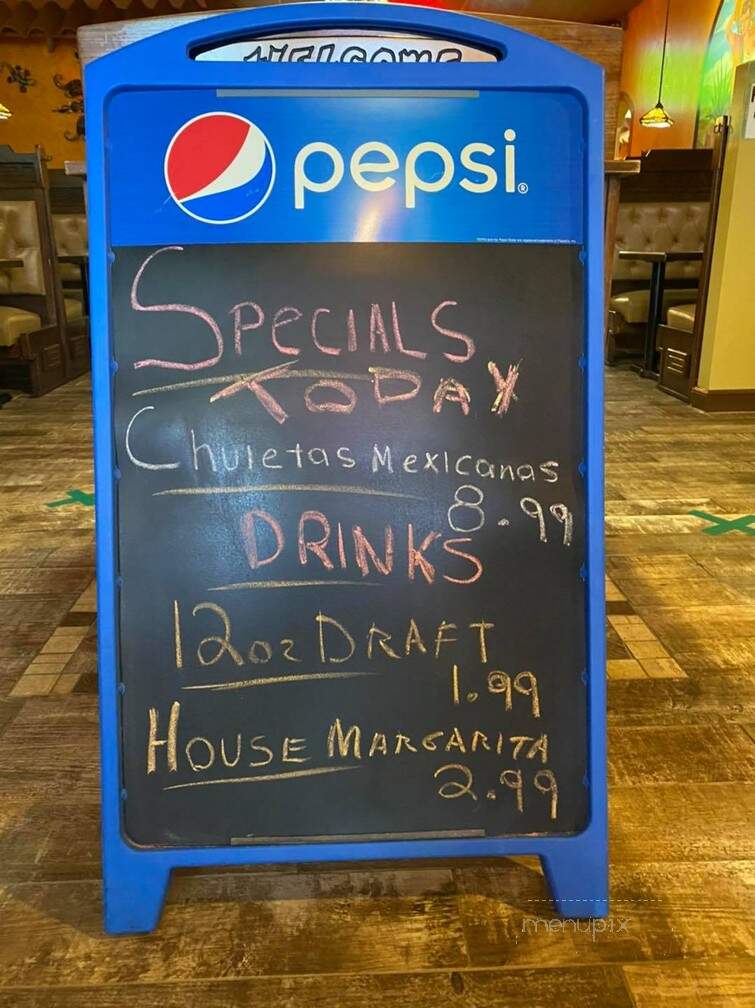 WELCOME
pepsi®
SPECIALS
TODAY
Chuletas Mexicanas
8.99
DRINKS
12oz DRAFT
1.99
HOUSE MARGARITA
2.99
menupix